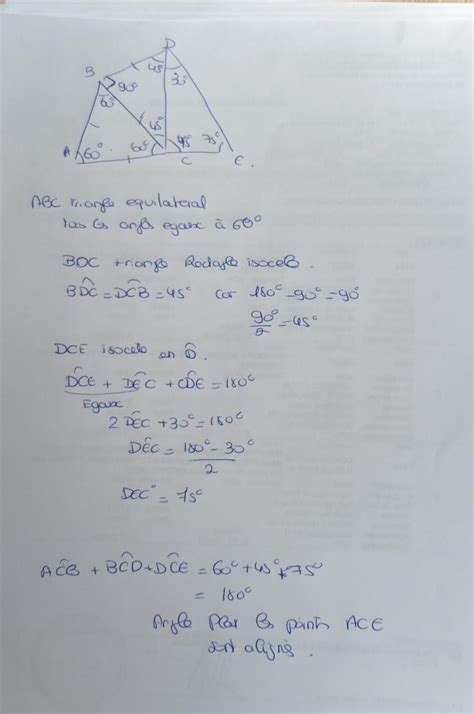 D
45°
30°
B
90°
60°
45°
A
60°
60°
75°
C
E.
ABC triangle equilateral
tous les angles egaux à 60°
BDC triangle Rectangle isocele.
BD̂C = DĈB = 45° Car 180° - 90° = 90°
90°/2 = 45°
DCE isocele en D̂.
DĈE + DÊC + CD̂E = 180°
Egaux
2 DÊC + 30° = 180°
DÊC = 180° - 30°
2
DEC = 75°
AĈB + BĈD + DĈE = 60° + 45° + 75°
= 180°
Angle Plat les points ACE
sont alignés.